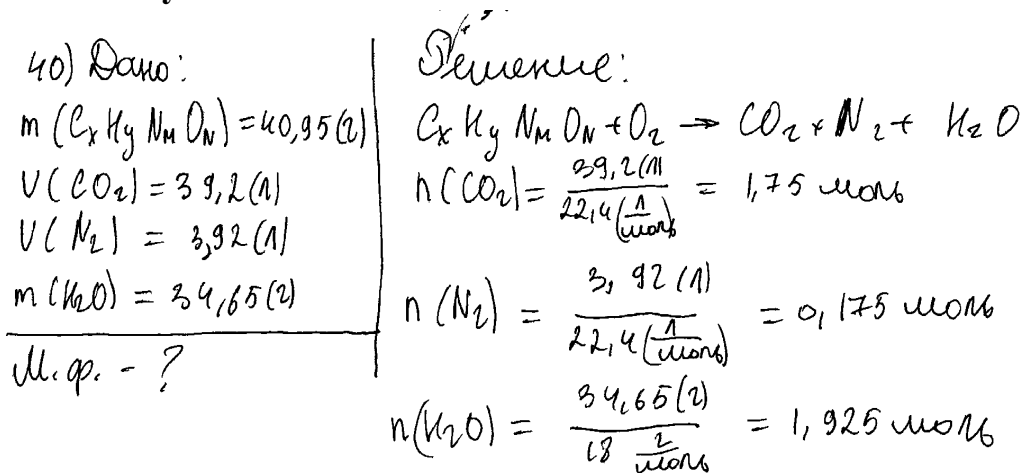 40) Дано:
m (CxHyNмON) = 40,95 (г)
V(CO₂) = 39,2 (л)
V(N₂) = 3,92 (л)
m(H₂O) = 34,65 (г)
М.ф. - ?
Решение:
CxHyNмON + O₂ → CO₂ + N₂ + H₂O
n(CO₂) = 39,2 (л) / 22,4 (л/моль) = 1,75 моль
n(N₂) = 3,92 (л) / 22,4 (л/моль) = 0,175 моль
n(H₂O) = 34,65 (г) / 18 г/моль = 1,925 моль